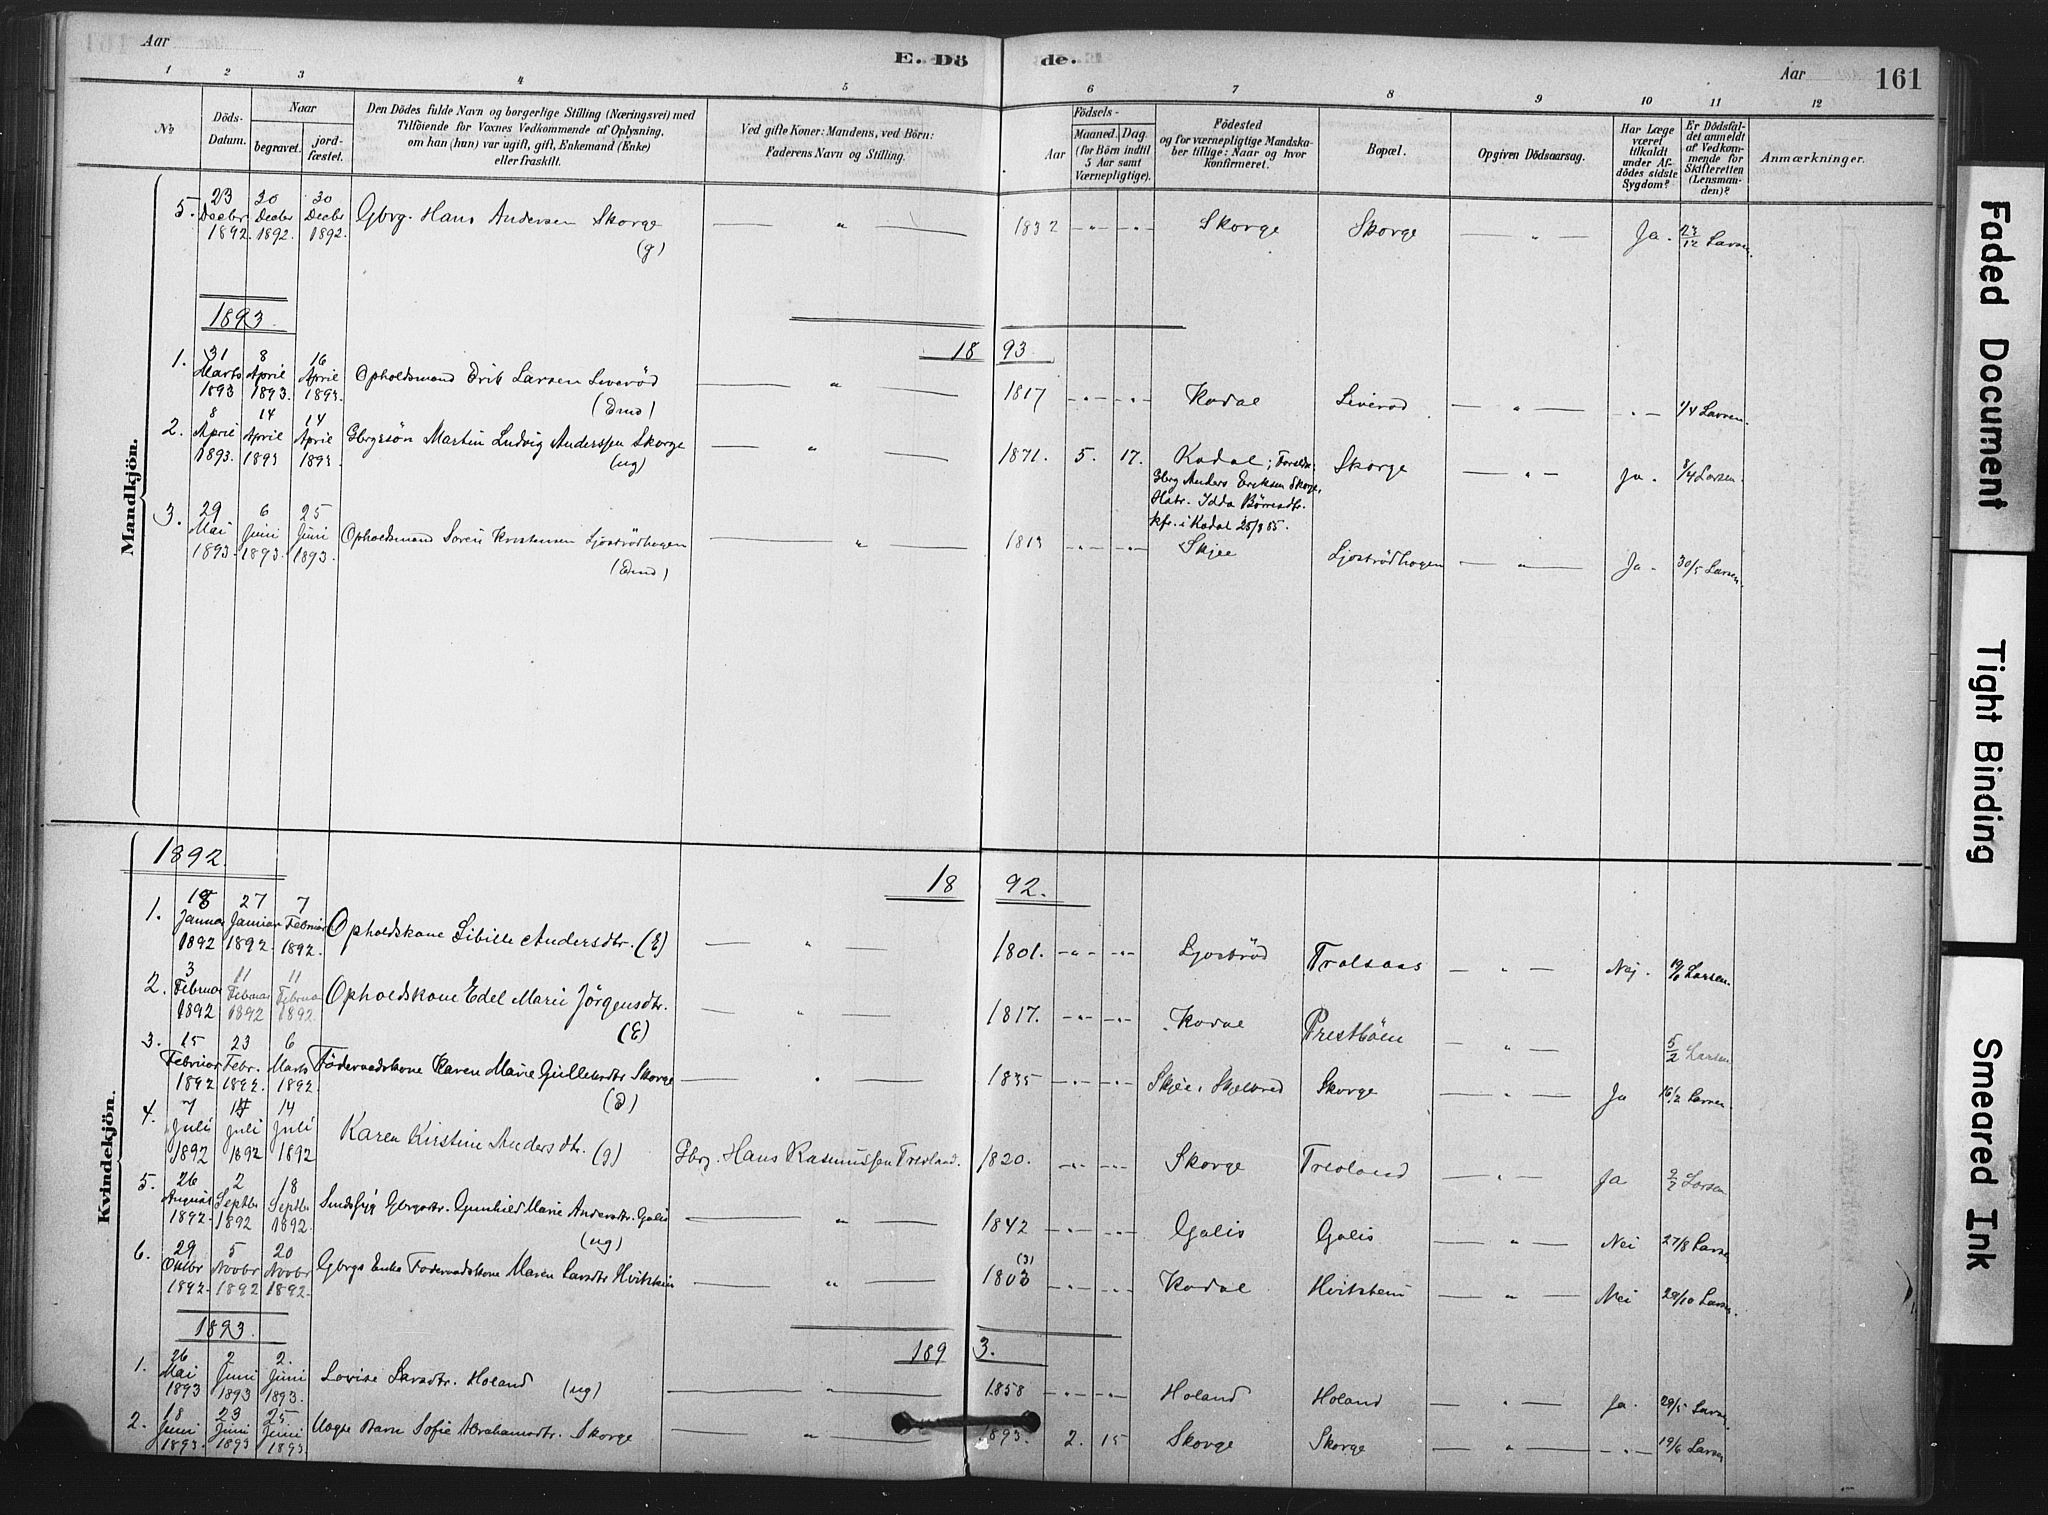 Aar
E. Dö
de.
Aar
161
1 2 3 4 5 6 7 8 9 10 11 12
No
Döds-
Datum.
Naar
begravet.
jord-
fæstet.
Den Dödes fulde Navn og borgerlige Stilling (Næringsvei) med
Tilföiende for Voxnes Vedkommende af Oplysning,
om han (hun) var ugift, gift, Enkemand (Enke)
eller fraskilt.
Ved gifte Koner: Mandens, ved Börn:
Faderens Navn og Stilling.
Födsels-
Aar
Maaned. Dag.
(for Börn indtil
5 Aar samt
Værnepligtige).
Födested
og for værnepligtige Mandska-
ber tillige: Naar og hvor
konfirmeret.
Bopæl.
Opgiven Dödsaarsag.
Har Læge
været
tilkaldt
under Af-
dödes sidste
Sygdom?
Er Dödsfal-
det anmeldt
af Vedkom-
mende for
Skifteretten
(Lensman-
den)?
Anmærkninger.
Mandkjön.
5. 23 Decbr 1892. 30 Decbr 1892. 30 Decbr 1892. Gbrg. Hans Andersen Skorge (g) — " — 1832 -"- -"- Skorge Skorge — " — Ja. 23/12 Larsen.
1893.
18 93.
1. 31 Marts 1893 8 April 1893. 16 April 1893. Opholdsmand Erik Larsen Liveröd (Emd) — " — 1817 -"- -"- Kodal Liveröd — " — -"- 1/4 Larsen.
2. 8 April 1893. 14 April 1893 14 April 1893. Gbrgsön Martin Ludvig Anderssen Skorge (ug) — " — 1871. 5. 17. Kodal; Forældr: Skorge — " — Ja. 8/4 Larsen.
Gbrg Anders Eriksen Skorge,
Hstr. Idda Börresdtr.
kfr. i Kodal 25/9 85.
3. 29 Mai 1893. 6 Juni 1893. 25 Juni 1893. Opholdsmand Sören Kristensen Ljoströdhogen (Emd) — " — 1813 -"- -"- Skjee Ljoströdhogen — " — Ja. 30/5 Larsen.
Kvindekjön.
1892.
18 92.
1. 18 Januar 1892 27 Januar 1892. 7 Februar 1892. Opholdskone Sibille Andersdtr. (E) — " — 1801. -"- -"- Ljoströd Trolsaas — " — Nej Larsen.
2. 3 Februar 1892 11 Februar 1892 11 Februar 1892. Opholdskone Edel Marie Jörgensdtr. (E) — " — 1817. -"- -"- Kodal Prestböen — " — 5/2 Larsen
3. 15 Februar 1892 23 Febr. 1892. 6 Marts 1892. Föderaadskone Karen Marie Gulleksdtr Skorge — " — 1835 -"- -"- Skjee, Skjelbred Skorge — " — Ja 16/2 Larsen.
4. 7 Juli 1892 14 Juli 1892 14 Juli 1892 Karen Kirstine Andersdtr. (g) Gbrg. Hans Rasmussen Treoland. 1820. -"- -"- Skorge Treoland — " — Ja Larsen.
5. 26 August 1892. 2 Septbr 1892 18 Septbr 1892. Sindssyg Gbrgdtr. Gunhild Marie Andersdtr. Golis (ug) — " — 1842 -"- -"- Golis Golis — " — Nei 27/8 Larsen
6. 29 Oktbr 1892. 5 Novbr 1892 20 Novbr 1892. Gbrgs Enke Föderaadskone Maren Larsdtr Hvitstein — " — 1803 (3) -"- -"- Kodal Hvitstein — " — Nei 29/10 Larsen.
1893.
189 3.
1. 26 Mai 1893 2 Juni 1893 2. Juni 1893. Lovise Larsdtr. Holand (ug) — " — 1858 -"- -"- Holand Holand — " — Ja. 29/5 Larsen
2. 18 Juni 1893. 23 Juni 1893 25 Juni 1893 Uægte Barn Sofie Abrahamsdtr. Skorge — " — 1893. 2. 15 Skorge Skorge — " — -"- 19/6 Larsen
Faded Document
Tight Binding
Smeared Ink